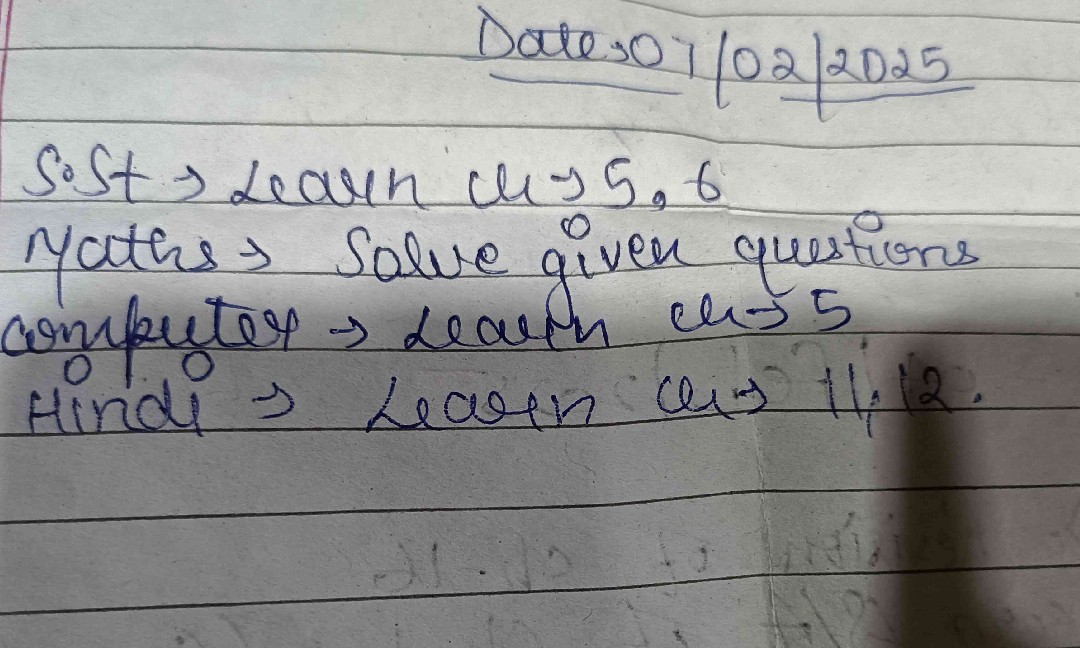 Date→07/02/2025
S.St → Learn ch → 5, 6
Maths → Solve given questions
computer → Learn ch → 5
Hindi → Learn ch → 11, 12.